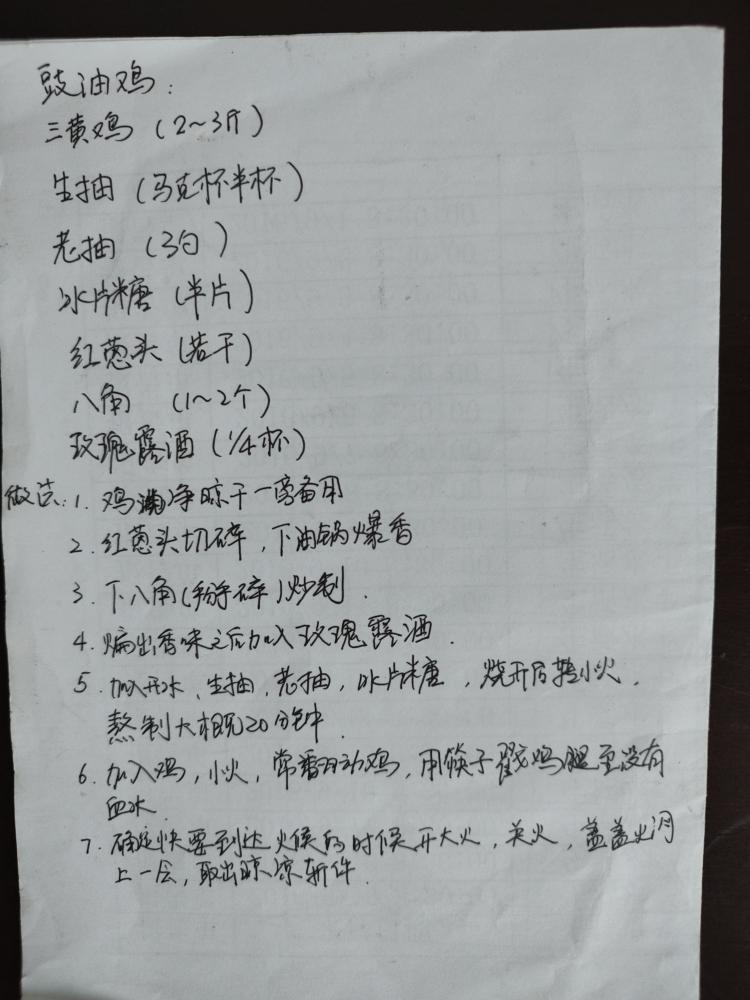 豉油鸡：
三黄鸡（2～3斤）
生抽（马克杯半杯）
老抽（3勺）
冰片糖（半片）
红葱头（若干）
八角（1～2个）
玫瑰露酒（1/4杯）
做法：1. 鸡洗净晾干一旁备用
2. 红葱头切碎，下油锅爆香
3. 下八角（掰碎）炒制.
4. 煸出香味之后加入玫瑰露酒.
5. 加入开水，生抽，老抽，冰片糖，烧开后转小火.
熬制大概20分钟.
6. 加入鸡，小火，常翻动鸡，用筷子戳鸡腿至没有
血水.
7. 确定快要到达火候的时候开大火，关火，盖盖火闷
上一会，取出晾凉斩件.